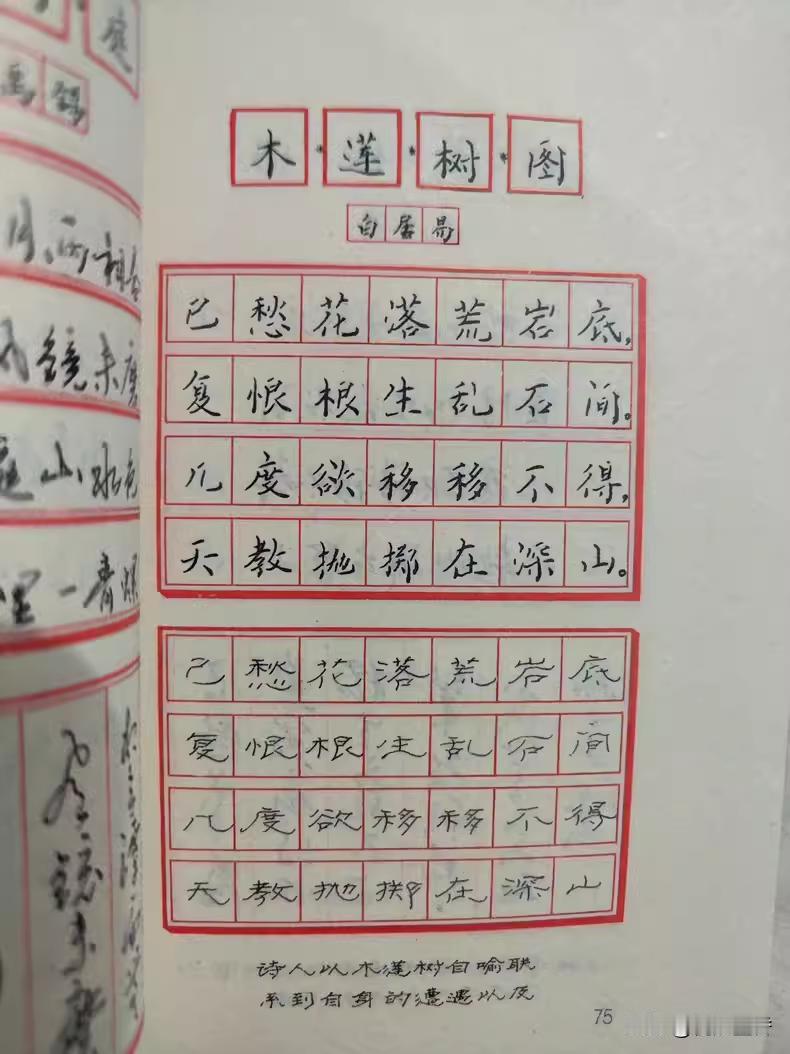 木·莲·树·图
白居易
已愁花落荒岩底，
复恨根生乱石间。
几度欲移移不得，
天教抛掷在深山。
已愁花落荒岩底
复恨根生乱石间
几度欲移移不得
天教抛掷在深山
诗人以木莲树自喻联
系到自身的遭遇以及
75
月两相
镜未磨
山水色
里一青螺